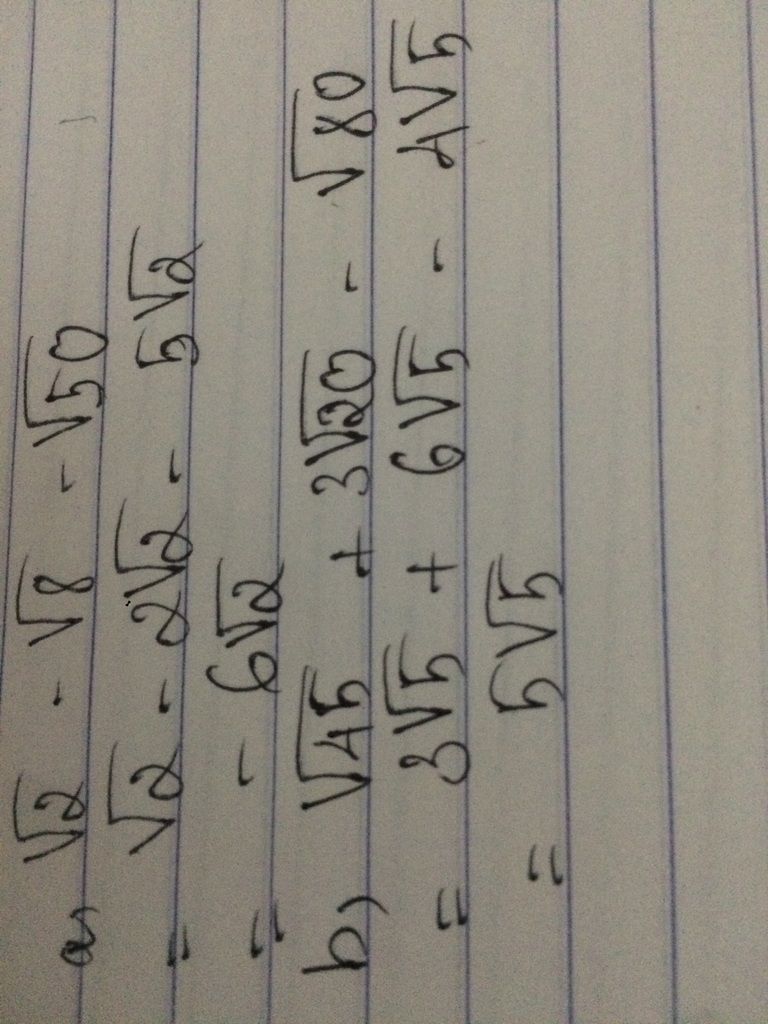 a) √2 - √8 - √50
= √2 - 2√2 - 5√2
= - 6√2
b) √45 + 3√20 - √80
= 3√5 + 6√5 - 4√5
= 5√5